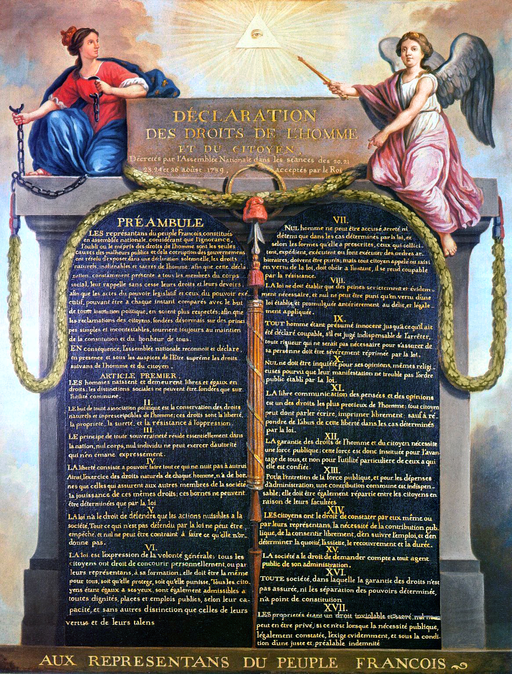 DÉCLARATION
DES DROITS DE L'HOMME
ET DU CITOYEN
Décretés par l'Assemblée Nationale dans les séances des 20, 21
23, 24 et 26 août 1789, acceptés par le Roi
PRÉAMBULE
LES représentans du peuple Francois constitués
en assemblée nationale, considérant que l'ignorance,
l'oubli ou le mépris des droits de l'homme sont les seules
causes des malheurs publics et de la corruption des gouvernemens
ont résolu d'exposer dans une déclaration solemnelle les droits
naturels, inaliénables et sacrés de l'homme: afin que cette décla-
ration, constamment présente a tous les membres du corps
social, leur rappelle sans cesse leurs droits et leurs devoirs;
afin que les actes du pouvoir législatif et ceux du pouvoir exé-
cutif, pouvant être a chaque instant comparés avec le but
de toute institution politique, en soient plus respectés; afin que
les réclamations des citoyens, fondées désormais sur des princi-
pes simples et incontestables, tournent toujours au maintien
de la constitution et du bonheur de tous.
EN conséquence, l'assemblée nationale reconnoit et déclare,
en présence et sous les auspices de l'Etre suprême les droits
suivans de l'homme et du citoyen.
ARTICLE PREMIER.
LES hommes naissent et demeurent libres et égaux en
droits, les distinctions sociales ne peuvent être fondées que sur
l'utilité commune.
II.
LE but de toute association politique est la conservation des droits
naturels et imprescriptibles de l'homme; ces droits sont la liberté,
la propriété, la sureté, et la résistance à l'oppression.
III.
LE principe de toute souveraineté réside essentiellement dans
la nation, nul corps, nul individu ne peut exercer d'autorité
qui n'en émane expressement.
IV.
LA liberté consiste a pouvoir faire tout ce qui ne nuit pas à autrui
Ainsi, l'exercice des droits naturels de chaque homme, n'a de bor-
nes que celles qui assurent aux autres membres de la société
la jouissance de ces mêmes droits; ces bornes ne peuvent
être déterminées que par la loi
V.
LA loi n'a le droit de défendre que les actions nuisibles a la
société. Tout ce qui n'est pas défendu par la loi ne peut être
empêché, et nul ne peut être contraint à faire ce qu'elle n'or-
donne pas.
VI.
LA loi est l'expression de la volonté générale; tous les
citoyens ont droit de concourir personnellement, ou par
leurs représentans, à sa formation; elle doit être la même
pour tous, soit qu'elle protege, soit qu'elle punisse. Tous les cito-
yens étant égaux a ses yeux, sont également admissibles a
toutes dignités, places et emplois publics, selon leur ca-
pacité, et sans autres distinction que celles de leurs
vertus et de leurs talens
VII.
NUL homme ne peut être accusé, arreté ni
détenu que dans les cas déterminés par la loi, et
selon les formes qu'elle a prescrites, ceux qui sollici-
tent, expédient, exécutent ou font exécuter des ordres ar-
bitraires, doivent être punis; mais tout citoyen appelé ou saisi
en vertu de la loi, doit obéir a l'instant, il se rend coupable
par la résistance.
VIII.
LA loi ne doit établir que des peines strictement et évidem-
ment nécessaire, et nul ne peut être puni qu'en vertu d'une
loi établie et promulguée antérieurement au délit, et légale-
ment appliquée.
IX.
TOUT homme étant présumé innocent jusqu'a ce qu'il ait
été déclaré coupable, s'il est jugé indispensable de l'arrêter,
toute rigueur qui ne serait pas nécessaire pour s'assurer de
sa personne doit être sévèrement réprimée par la loi.
X.
NUL ne doit être inquiété pour ses opinions, mêmes religi-
euses pourvu que leur manifestation ne trouble pas l'ordre
public établi par la loi.
XI.
LA libre communication des pensées et des opinions
est un des droits les plus precieux de l'homme; tout citoyen
peut donc parler écrire, imprimer librement; sauf à ré-
pondre de l'abus de cette liberté dans les cas déterminés
par la loi.
XII.
LA garantie des droits de l'homme et du citoyen nécessite
une force publique; cette force est donc instituée pour l'avan-
tage de tous, et non pour l'utilité particuliere de ceux a qui
elle est confiée.
XIII.
Pour l'entretien de la force publique, et pour les dépenses
d'administration, une contribution commune est indispen-
sable; elle doit être également répartie entre les citoyens en
raison de leurs facultées
XIV.
LES citoyens ont le droit de constater par eux même ou
par leurs représentans, la nécessité de la contribution pub-
lique, de la consentir librement, d'en suivre l'emploi, et d'en
déterminer la quotité, l'assiette, le recouvrement et la durée.
XV.
LA société a le droit de demander compte a tout agent
public de son administration.
XVI.
TOUTE société, dans laquelle la garantie des droits n'est
pas assurée, ni les séparation des pouvoirs déterminée,
n'a point de constitution
XVII.
LES propriétés étant un droit inviolable et sacré, nul ne
peut en être privé, si ce n'est lorsque la nécessité publique,
légalement constatée, l'exige évidemment, et sous la condi-
tion d'une juste et préalable indemnité
AUX REPRESENTANS DU PEUPLE FRANCOIS